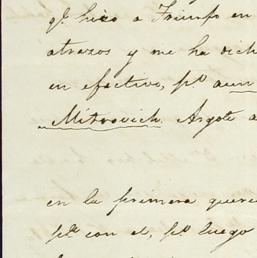 qᵉ hizo a Triunfo en
atrazos y me ha dich
en efectivo, pº aun
Mitrovich. Argote a
en la primera quere
pº con el, pº luego